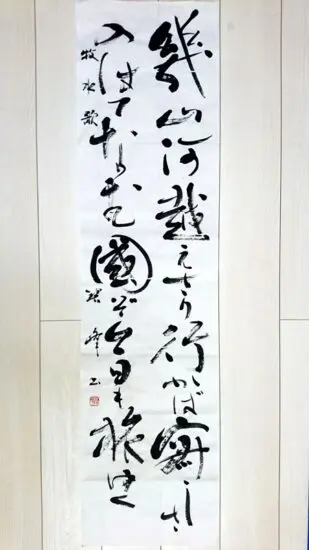 幾山河越えさり行かば寂しさ
のはてなむ國ぞ今日も旅ゆく
牧水歌